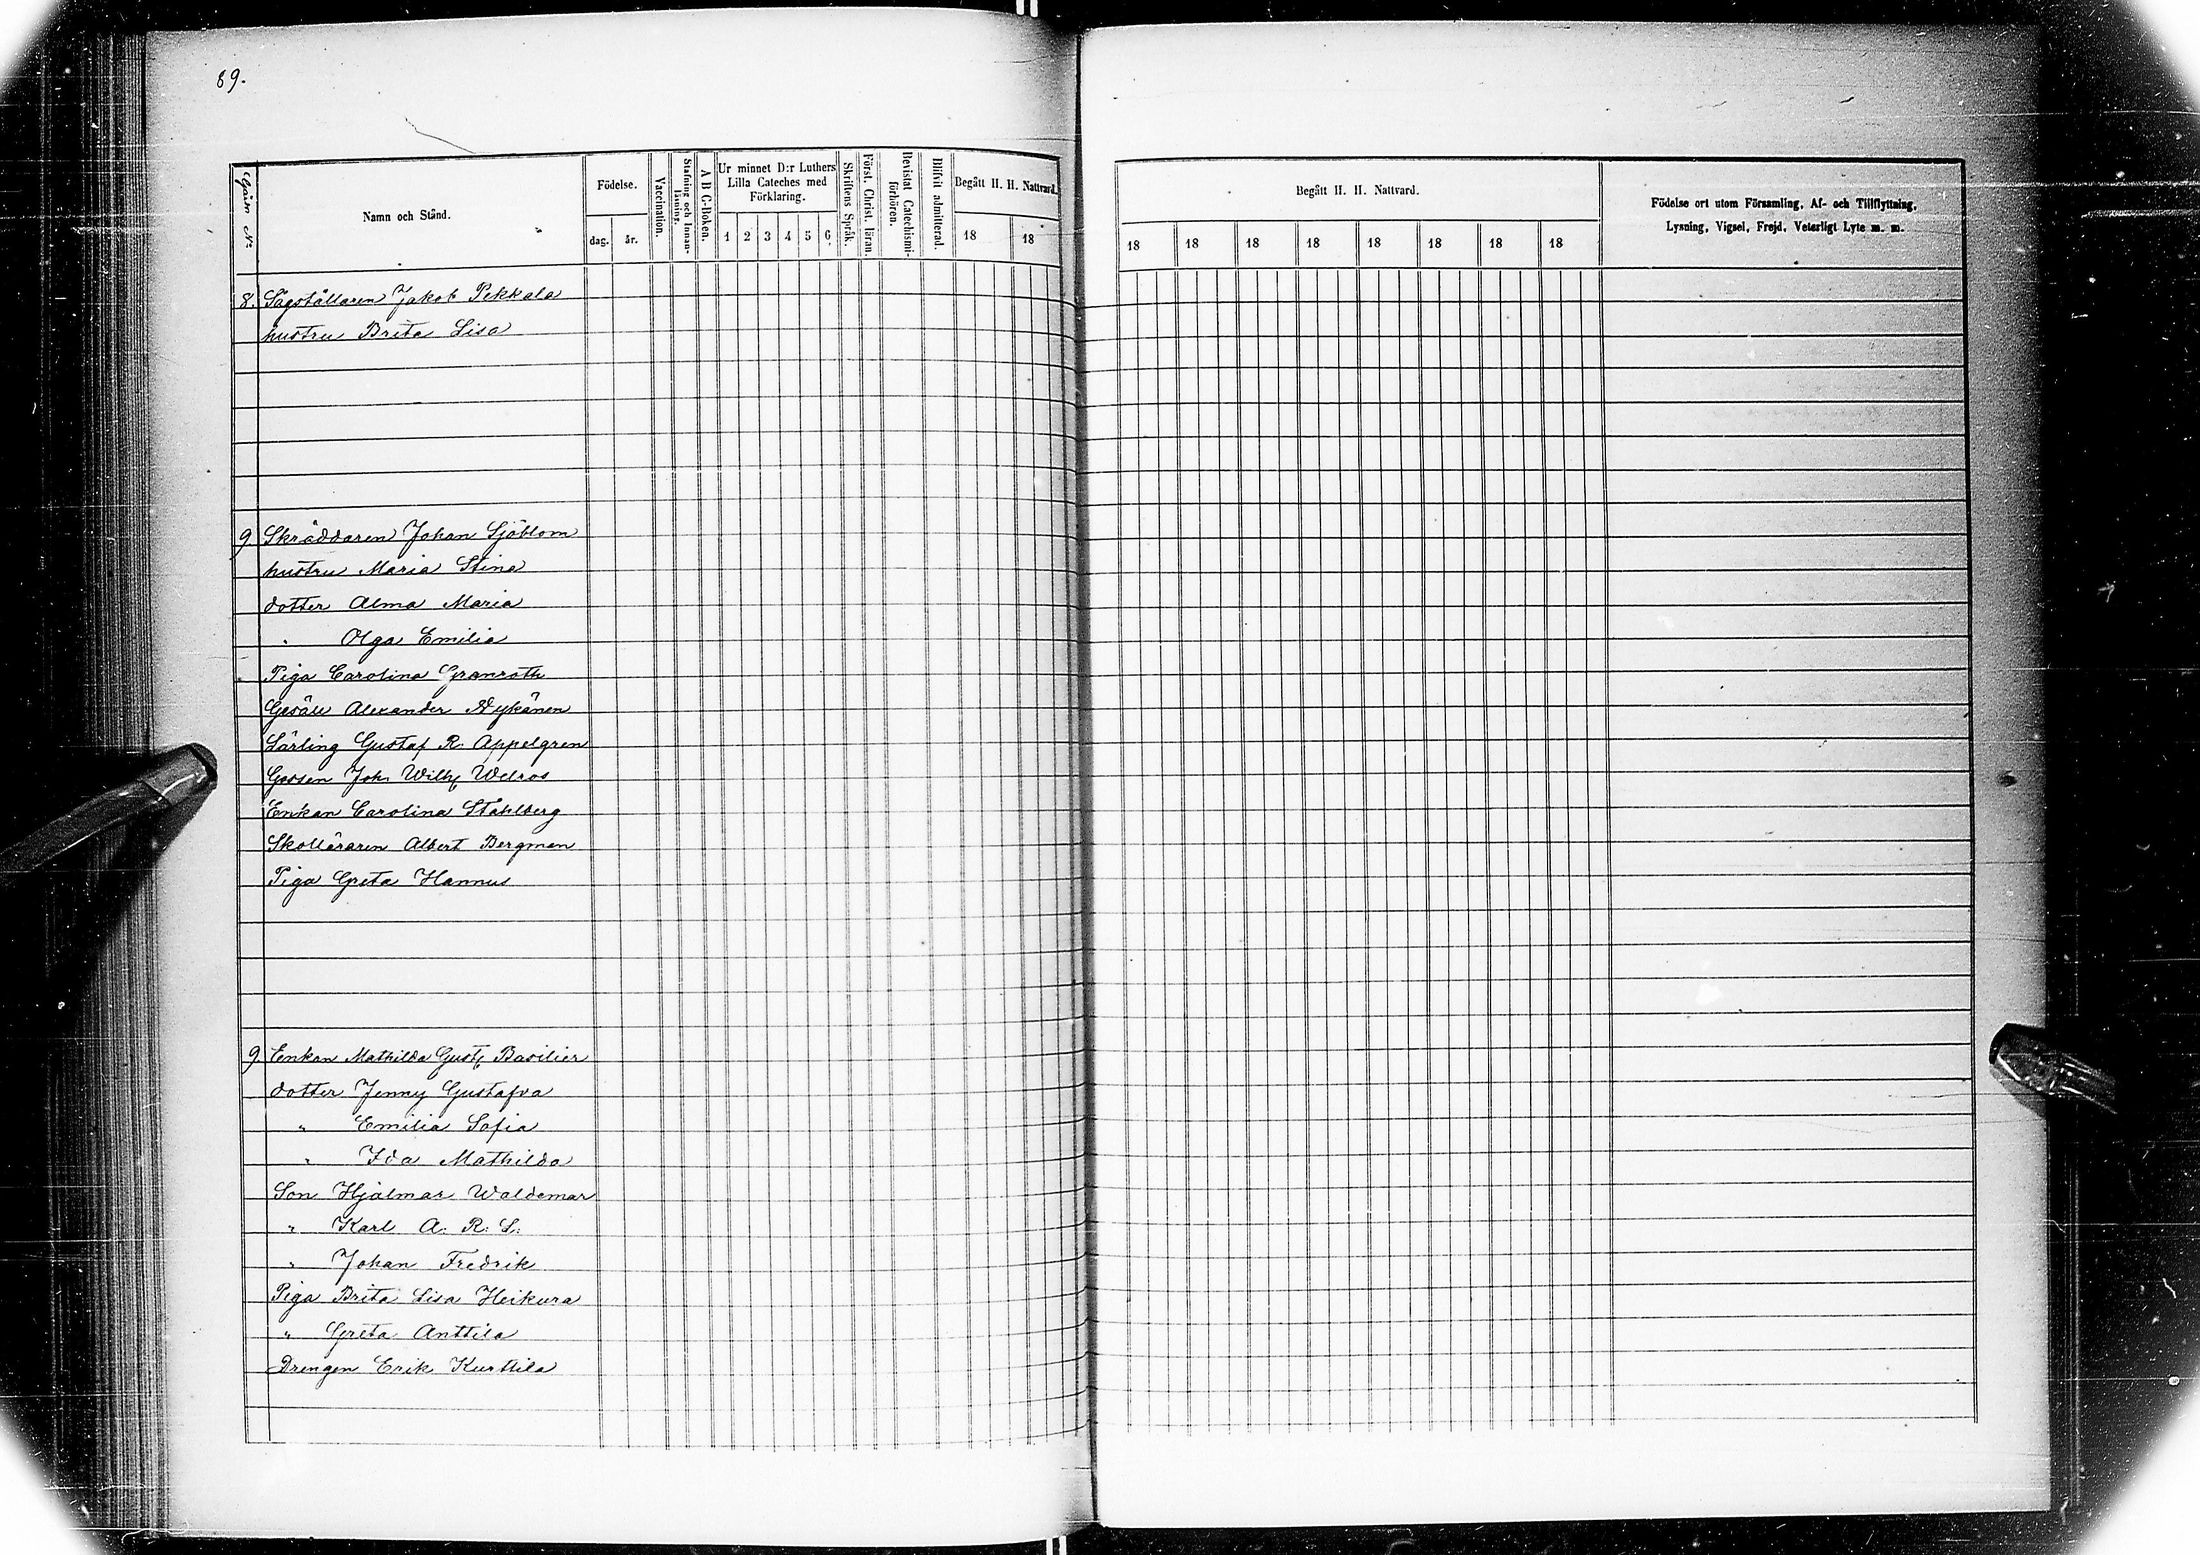 89.
Gårds No
Namn och Stånd.
Födelse.
dag.
år.
Vaccination.
Stafning och Innan-läsning.
A B C-Boken.
Ur minnet D:r Luthers
Lilla Cateches med
Förklaring.
1 2 3 4 5 6
Skriftens Språk.
Först. Christ. läran.
Bevistat Catechismi-förhören.
Blifvit admitterad.
Begått H. H. Nattvard.
18 18
Begått H. H. Nattvard.
18 18 18 18 18 18 18 18
Födelse ort utom Församling, Af- och Tillflyttning,
Lysning, Vigsel, Frejd, Veterligt Lyte m. m.
8. Sågställaren Jakob Pekkala
hustru Brita Lisa
9 Skräddaren Johan Sjöblom
hustru Maria Stina
dotter Alma Maria
" Olga Emilia
Piga Carolina Granroth
Gesäll Alexander Nykänen
Lärling Gustaf R. Appelgren
Gossen Joh. Wilh. Welros
Enkan Carolina Ståhlberg
Skolläraren Albert Bergman
Piga Greta Hannus
9 Enkan Mathilda Gustf. Basilier
dotter Jenny Gustafva
" Emilia Sofia
" Ida Mathilda
Son Hjalmar Waldemar
" Karl A. R. L.
" Johan Fredrik
Piga Brita Lisa Heikura
" Greta Anttila
Drengen Erik Kurttila